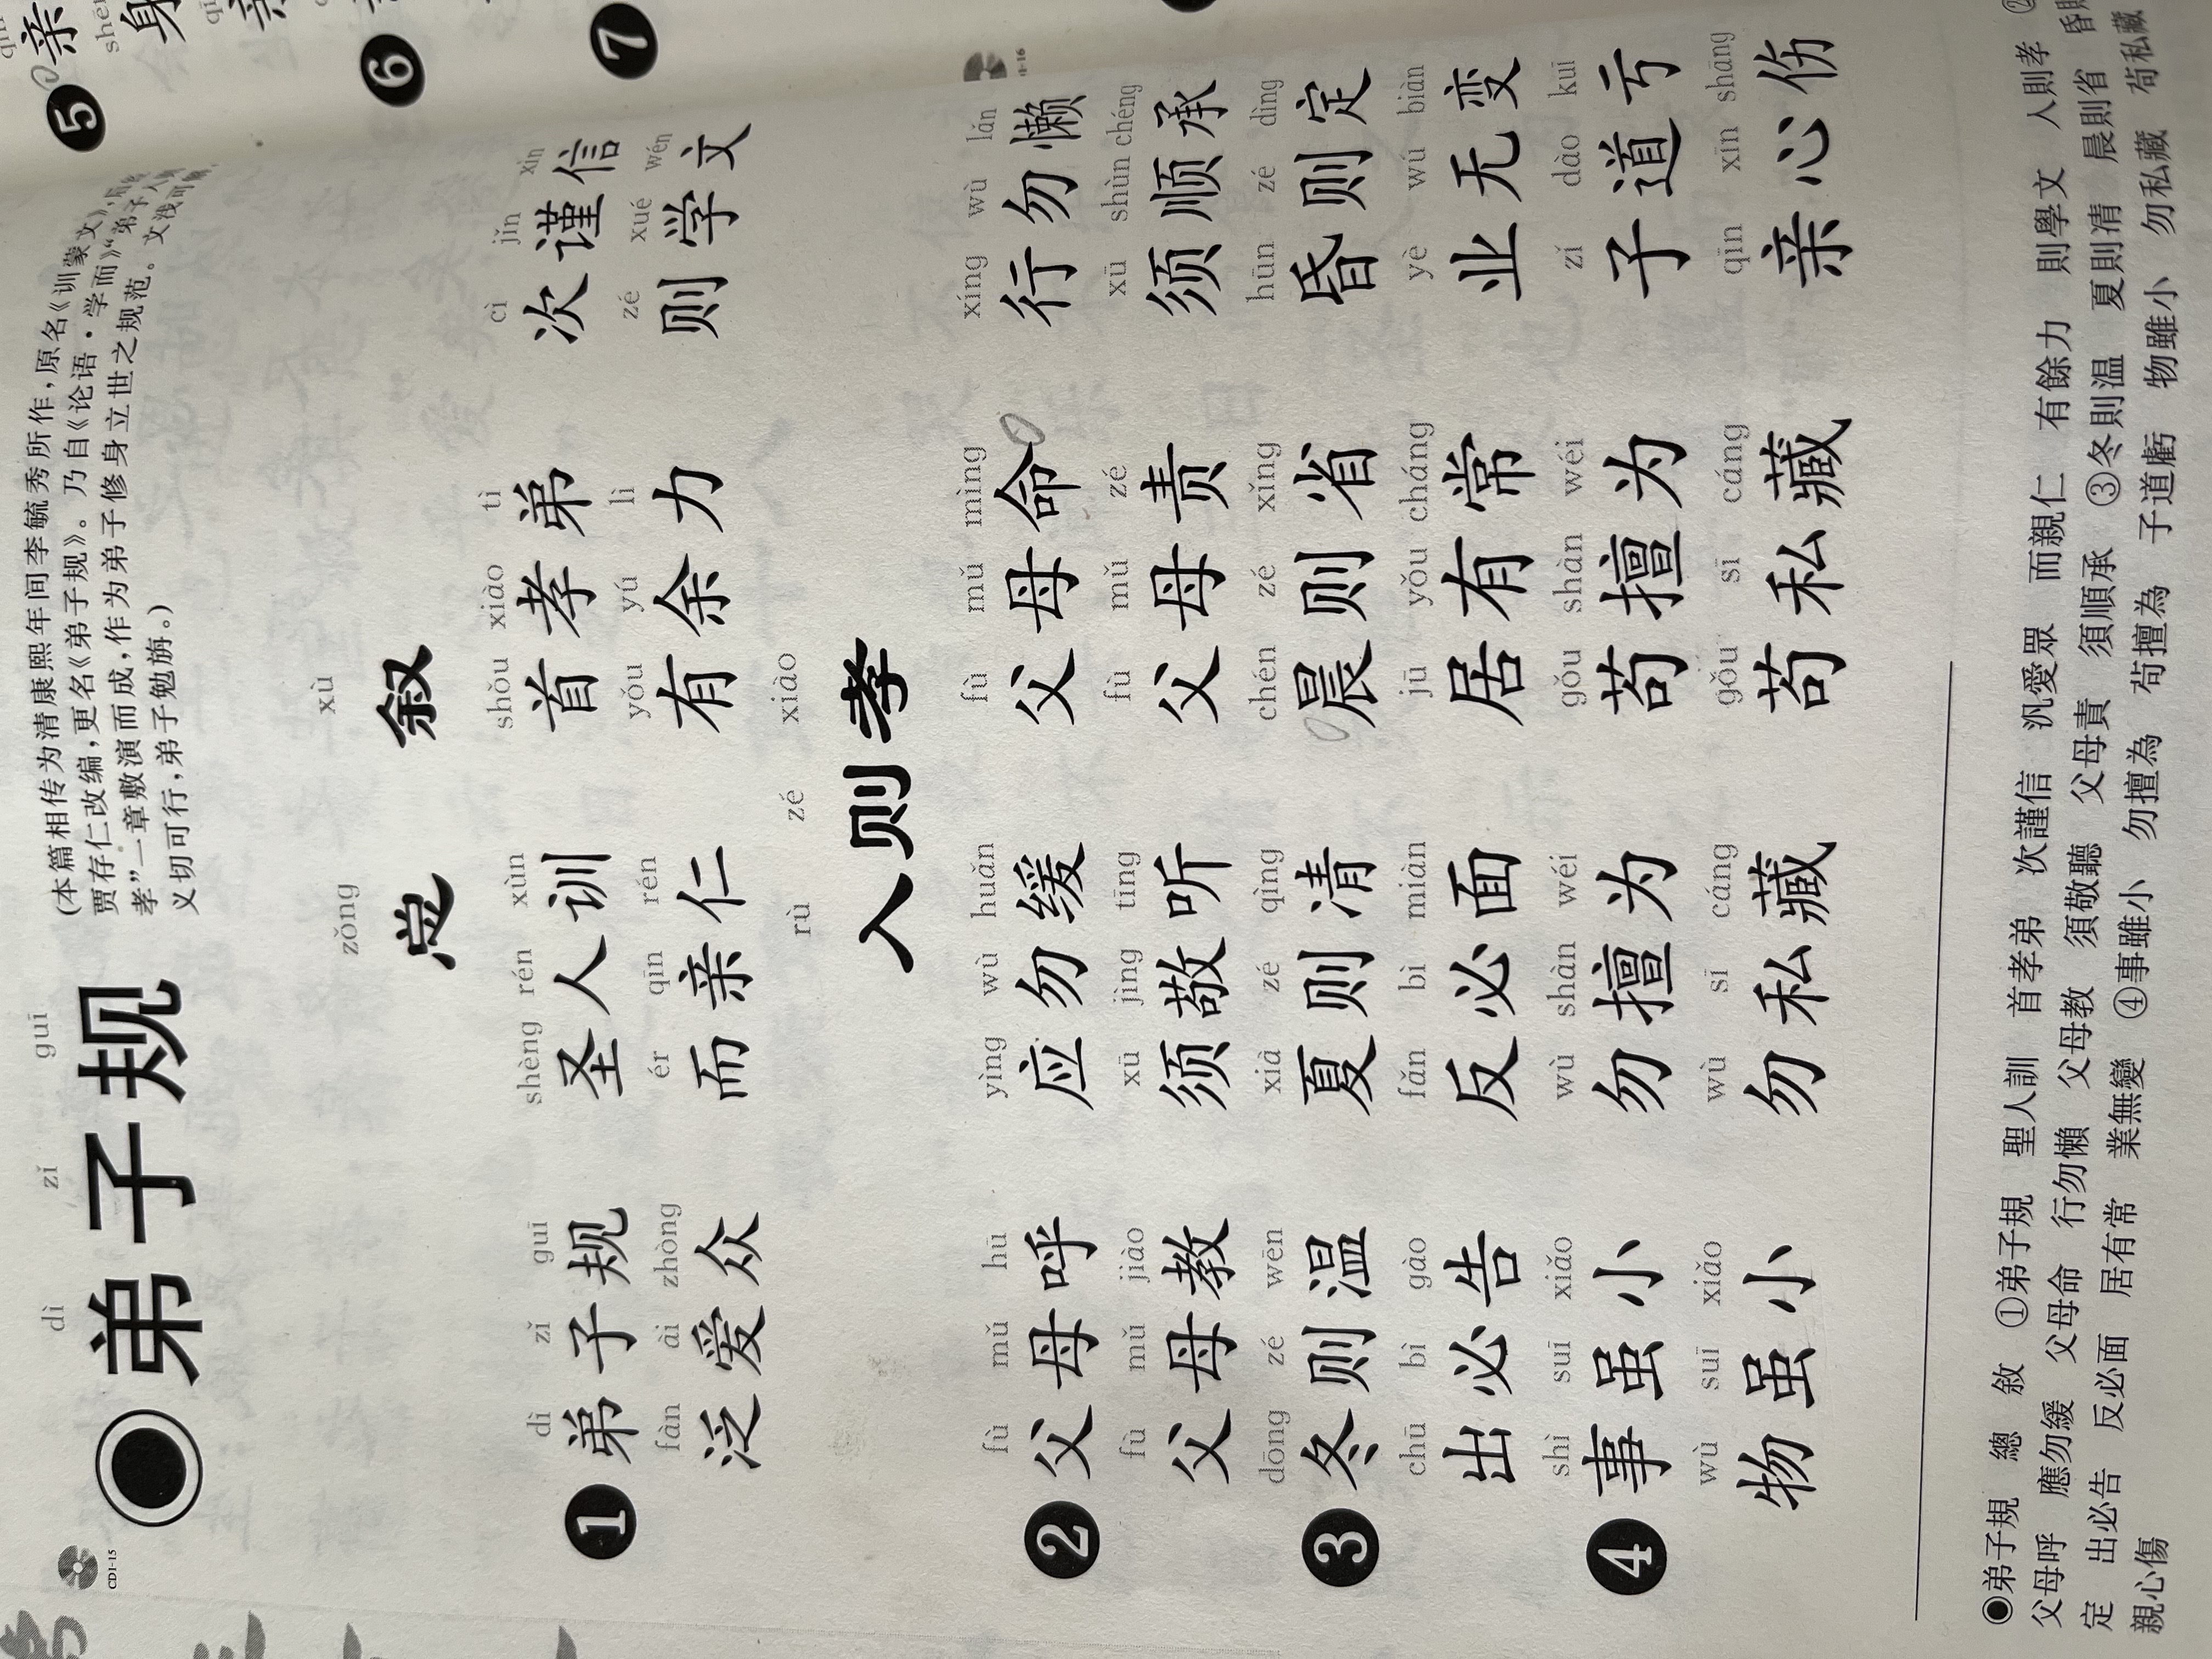 CD1-15
dì zǐ guī
弟子规
(本篇相传为清康熙年间李毓秀所作,原名《训蒙文》,
贾存仁改编,更名《弟子规》。乃自《论语·学而》“弟子入则
孝”一章敷演而成,作为弟子修身立世之规范。文浅
义切可行,弟子勉旃。)
zǒng xù
总 叙
dì zǐ guī shèng rén xùn shǒu xiào tì cì jǐn xìn
❶ 弟子规 圣人训 首孝弟 次谨信
fàn ài zhòng ér qīn rén yǒu yú lì zé xué wén
泛爱众 而亲仁 有余力 则学文
rù zé xiào
入则孝
fù mǔ hū yìng wù huǎn fù mǔ mìng xíng wù lǎn
❷ 父母呼 应勿缓 父母命 行勿懒
fù mǔ jiào xū jìng tīng fù mǔ zé xū shùn chéng
父母教 须敬听 父母责 须顺承
dōng zé wēn xià zé qìng chén zé xǐng hūn zé dìng
❸ 冬则温 夏则凊 晨则省 昏则定
chū bì gào fǎn bì miàn jū yǒu cháng yè wú biàn
出必告 反必面 居有常 业无变
shì suī xiǎo wù shàn wéi gǒu shàn wéi zǐ dào kuī
❹ 事虽小 勿擅为 苟擅为 子道亏
wù suī xiǎo wù sī cáng gǒu sī cáng qīn xīn shāng
物虽小 勿私藏 苟私藏 亲心伤
◉弟子規 總 敘 ①弟子規 聖人訓 首孝弟 次謹信 汎愛眾 而親仁 有餘力 則學文 入則孝 ②
父母呼 應勿緩 父母命 行勿懶 父母教 須敬聽 父母責 須順承 ③冬則温 夏則凊 晨則省 昏則
定 出必告 反必面 居有常 業無變 ④事雖小 勿擅為 苟擅為 子道虧 物雖小 勿私藏 苟私藏
親心傷
❺ 亲
身
❻
❼